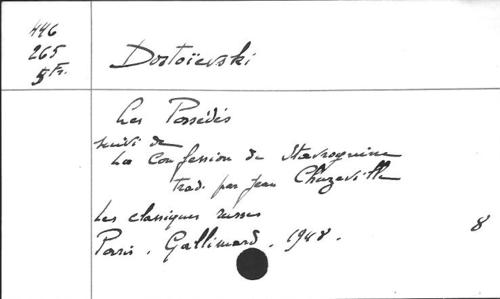 446
265
5 Fr.
Dostoïevski
Les Possédés
suivi de
La Confession de Stavroguine
trad. par Jean Chuzeville
Les classiques russes
Paris. Gallimard. 1948.
8